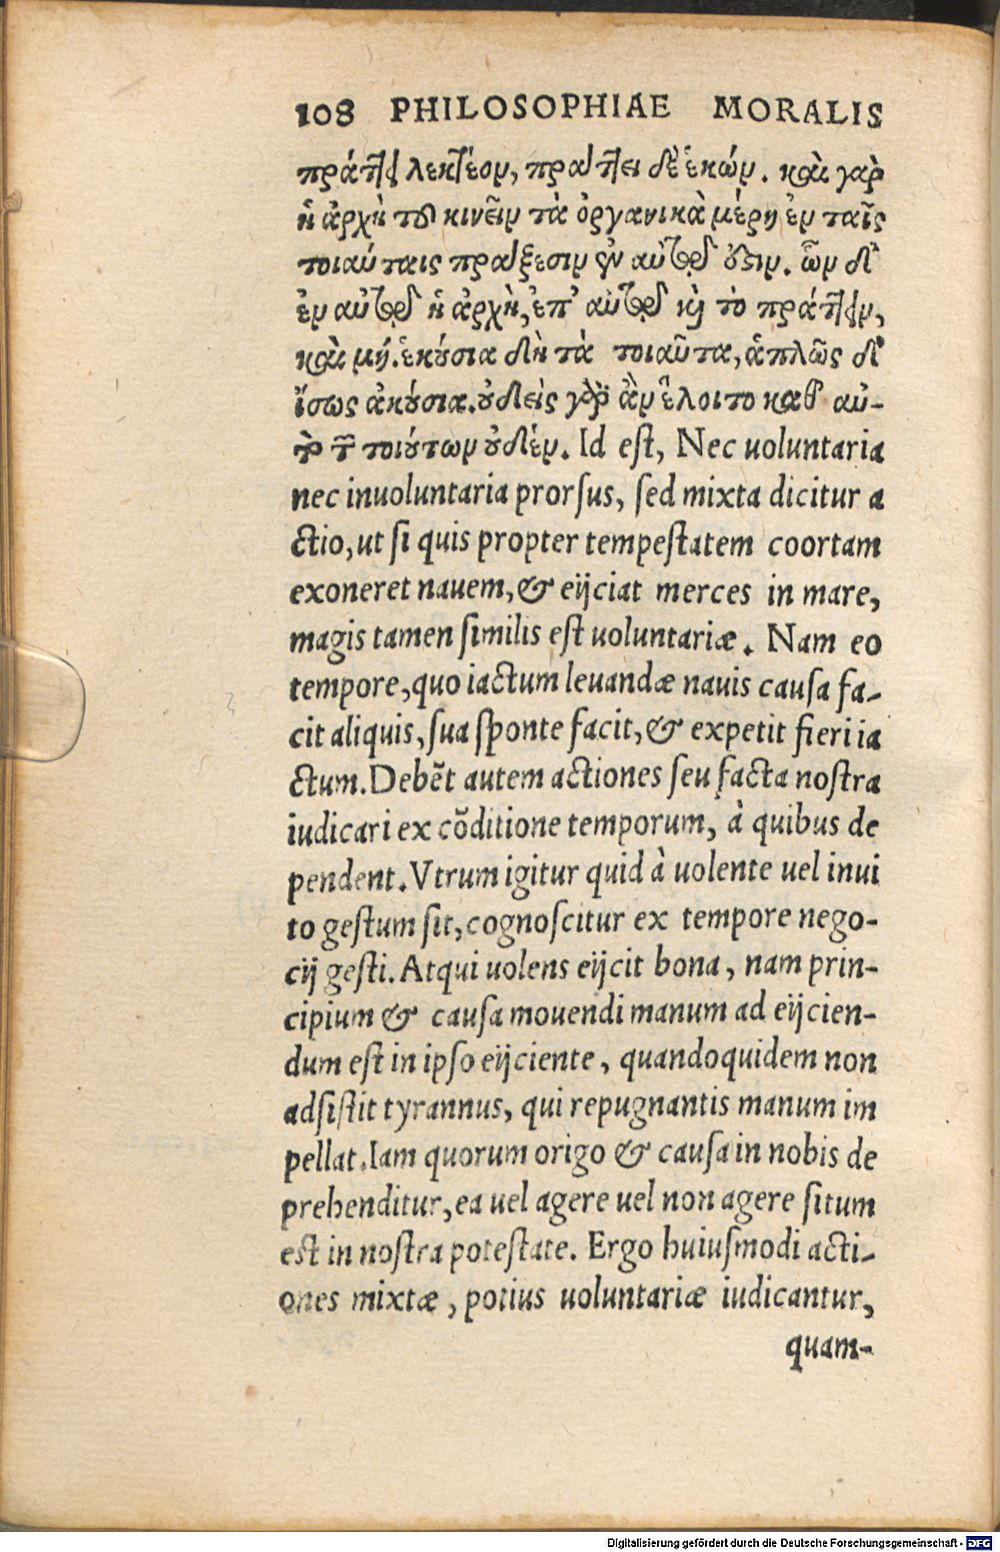 108 PHILOSOPHIAE MORALIS
πράττῃ λεκτέον, πράττει δὲ ἑκών. καὶ γὰρ
ἡ ἀρχὴ τοῦ κινεῖν τὰ ὀργανικὰ μέρη ἐν ταῖς
τοιαύταις πράξεσιν ἐν αὐτῷ ὅεστιν. ὧν δ᾽
ἐν αὐτῷ ἡ ἀρχὴ, ἐπ᾽ αὐτῷ καὶ τὸ πράττειν,
καὶ μή. ἑκούσια δὴ τὰ τοιαῦτα, ἁπλῶς δ᾽
ἴσως ἀκούσια. οὐδεὶς γὰρ ἂν ἕλοιτο καθ᾽ αὑ-
τὸ τῶν τοιούτων οὐδέν. Id eſt, Nec uoluntaria
nec inuoluntaria prorſus, ſed mixta dicitur a
ctio, ut ſi quis propter tempeſtatem coortam
exoneret nauem, & eijciat merces in mare,
magis tamen ſimilis eſt uoluntariæ. Nam eo
tempore, quo iactum leuandæ nauis cauſa fa-
cit aliquis, ſua ſponte facit, & expetit fieri ia
ctum. Debẽt autem actiones ſeu facta noſtra
iudicari ex cõditione temporum, à quibus de
pendent. Vtrum igitur quid à uolente uel inui
to geſtum ſit, cognoſcitur ex tempore nego-
cij geſti. Atqui uolens eijcit bona, nam prin-
cipium & cauſa mouendi manum ad eijcien-
dum eſt in ipſo eijciente, quandoquidem non
adſiſtit tyrannus, qui repugnantis manum im
pellat. Iam quorum origo & cauſa in nobis de
prehenditur, ea uel agere uel non agere ſitum
eſt in noſtra poteſtate. Ergo huiuſmodi acti-
ones mixtæ, potius uoluntariæ iudicantur,
quam-
Digitalisierung gefördert durch die Deutsche Forschungsgemeinschaft - DFG